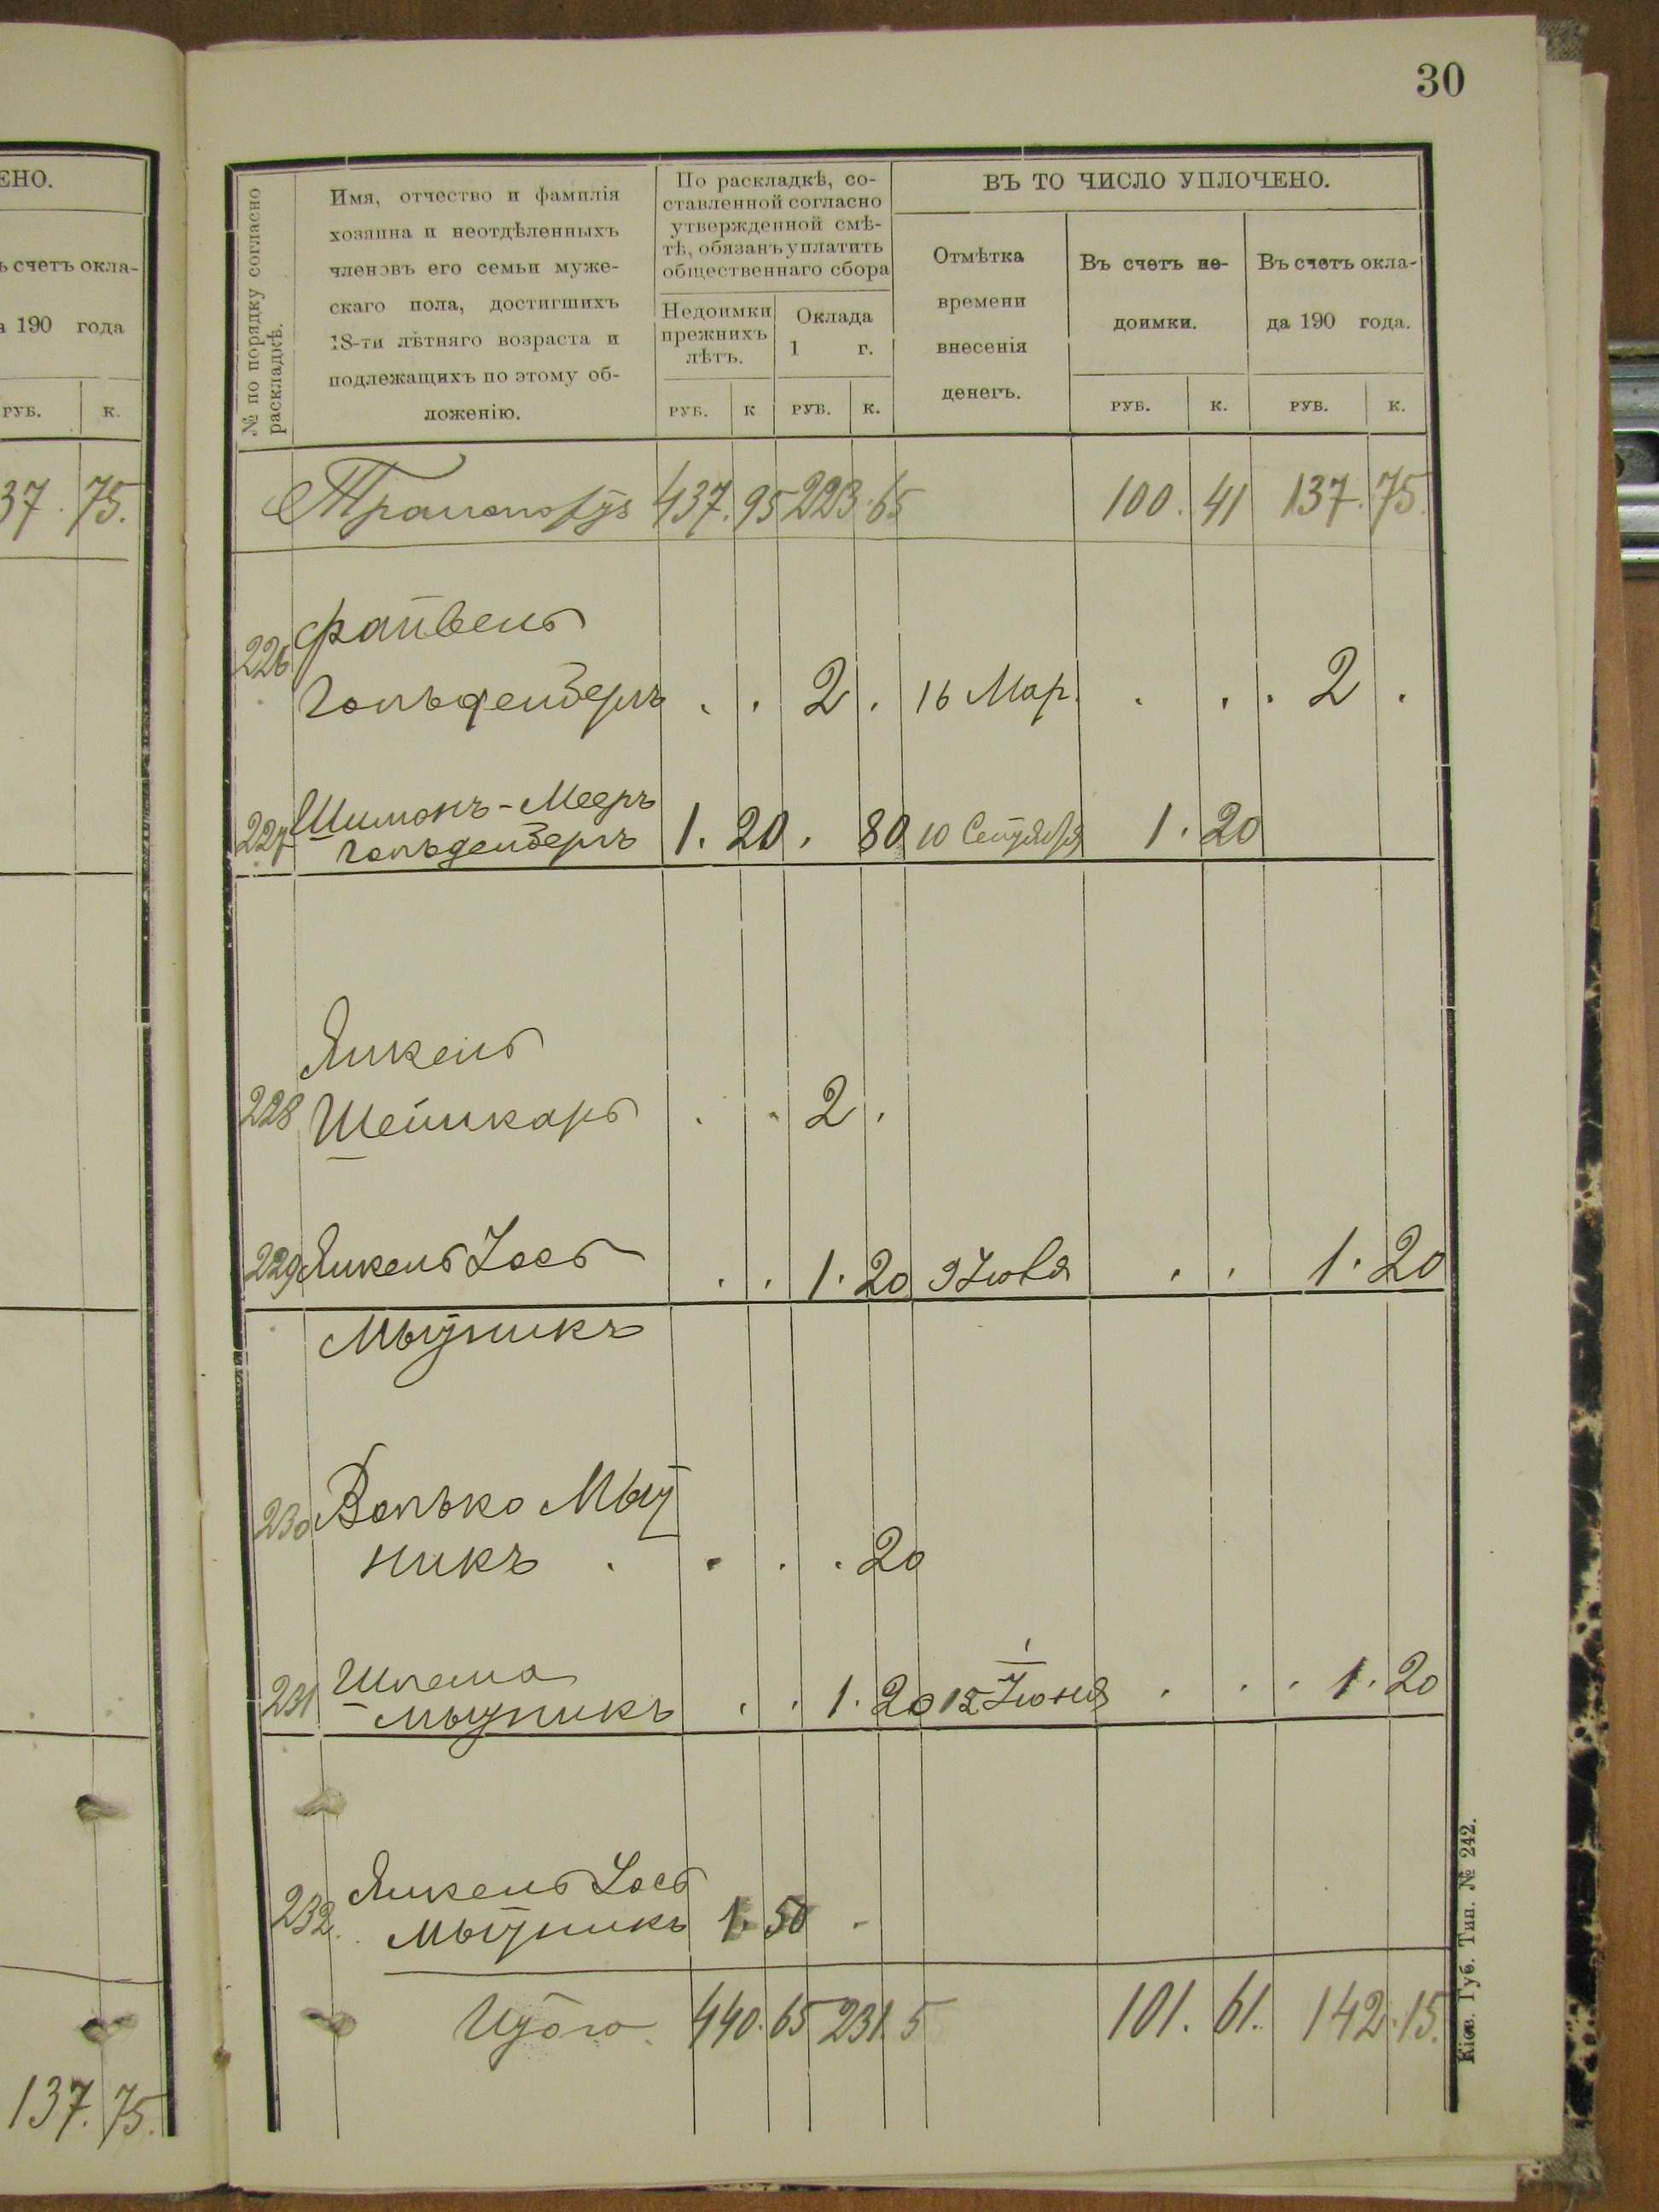 ЕНО.
ъ счетъ окла-
а 190 года
РУБ. К.
37. 75.
137. 75.
30
№ по порядку согласно
раскладкѣ.
Имя, отчество и фамилія
хозяина и неотдѣленныхъ
членовъ его семьи муже-
скаго пола, достигшихъ
18-ти лѣтняго возраста и
подлежащихъ по этому об-
ложенію.
По раскладкѣ, со-
ставленной согласно
утвержденной смѣ-
тѣ, обязанъ уплатить
общественнаго сбора
Недоимки
прежнихъ
лѣтъ.
Оклада
1 г.
РУБ. К РУБ. К.
ВЪ ТО ЧИСЛО УПЛОЧЕНО.
Отмѣтка
времени
внесенія
денегъ.
Въ счетъ не-
доимки.
РУБ. К.
Въ счетъ окла-
да 190 года.
РУБ. К.
Транспортъ 437. 95 223. 65 100. 41 137. 75.
226 Файвель
Гольденбергъ . . 2 . 16 Мар. . . . 2 .
227 Шимонъ-Мееръ
Гольденбергъ 1. 20 . 80 10 Сентября 1. 20
Янкель
228 Шейнкаръ . . 2 .
229 Янкель Іось . . 1. 20 9 Іюля . . 1. 20
Мытникъ
230 Волько Мыт
никъ . . . . 20
231 Шлема
Мытникъ . . 1. 20 15 Іюня . . . 1. 20
232. Янкель Іось
Мытникъ 1. 50 .
Итого 440. 65 231. 5 101. 61. 142. 15.
Кіев. Губ. Тип. № 242.